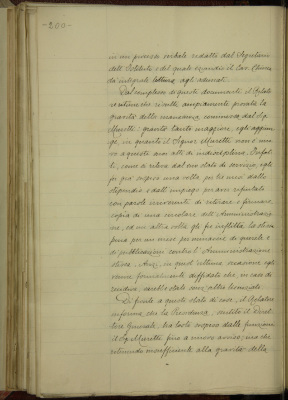 - 260 -
in un processo verbale redatto dal Segretario
dell'Istituto e del quale
dà integrale lettura agli adunati.
Dal complesso di questi documenti il Relatore
ritiene che risulti ampiamente provata la
gravità della mancanza commessa dal Sig.
Muretti: gravità tanto maggiore, egli aggiun-
ge, in quanto il Signor Muretti non è nuo-
vo a questi suoi atti di indisciplina. Infat-
ti, come si rileva dal suo stato di servizio, egli
fu già sospeso una volta per tre mesi dallo
stipendio e dall'impiego per aver rifiutato
con parole irriverenti di ritirare e firmare
copia di una circolare dell'Amministrazio-
ne, ed un'altra volta gli fu inflitta la stessa
pena per un mese per minaccie di querele e
di pubblicazioni contro l'Amministrazione
stessa. Anzi, in quest'ultima occasione egli
venne formalmente diffidato che in caso di
recidiva, sarebbe stato senz'altro licenziato.
Di fronte a questo stato di cose, il Relatore
informa che la Presidenza, sentito il Diret-
tore Generale, ha tosto sospeso dalle funzioni
il Sig. Muretti fino a nuovo avviso; ma che
ritenendo insufficiente alla gravità della